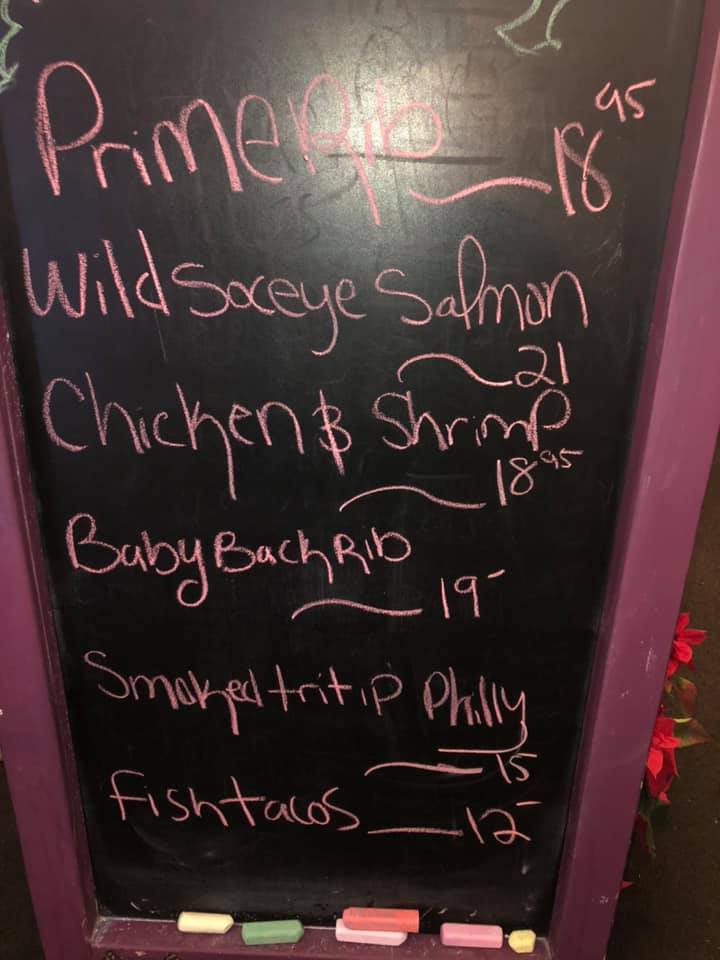 Prime Rib 18 95
Wild Soceye Salmon
21
Chicken & Shrimp
18 95
Baby Back Rib
19-
Smoked tritip Philly
15
fish tacos 12-